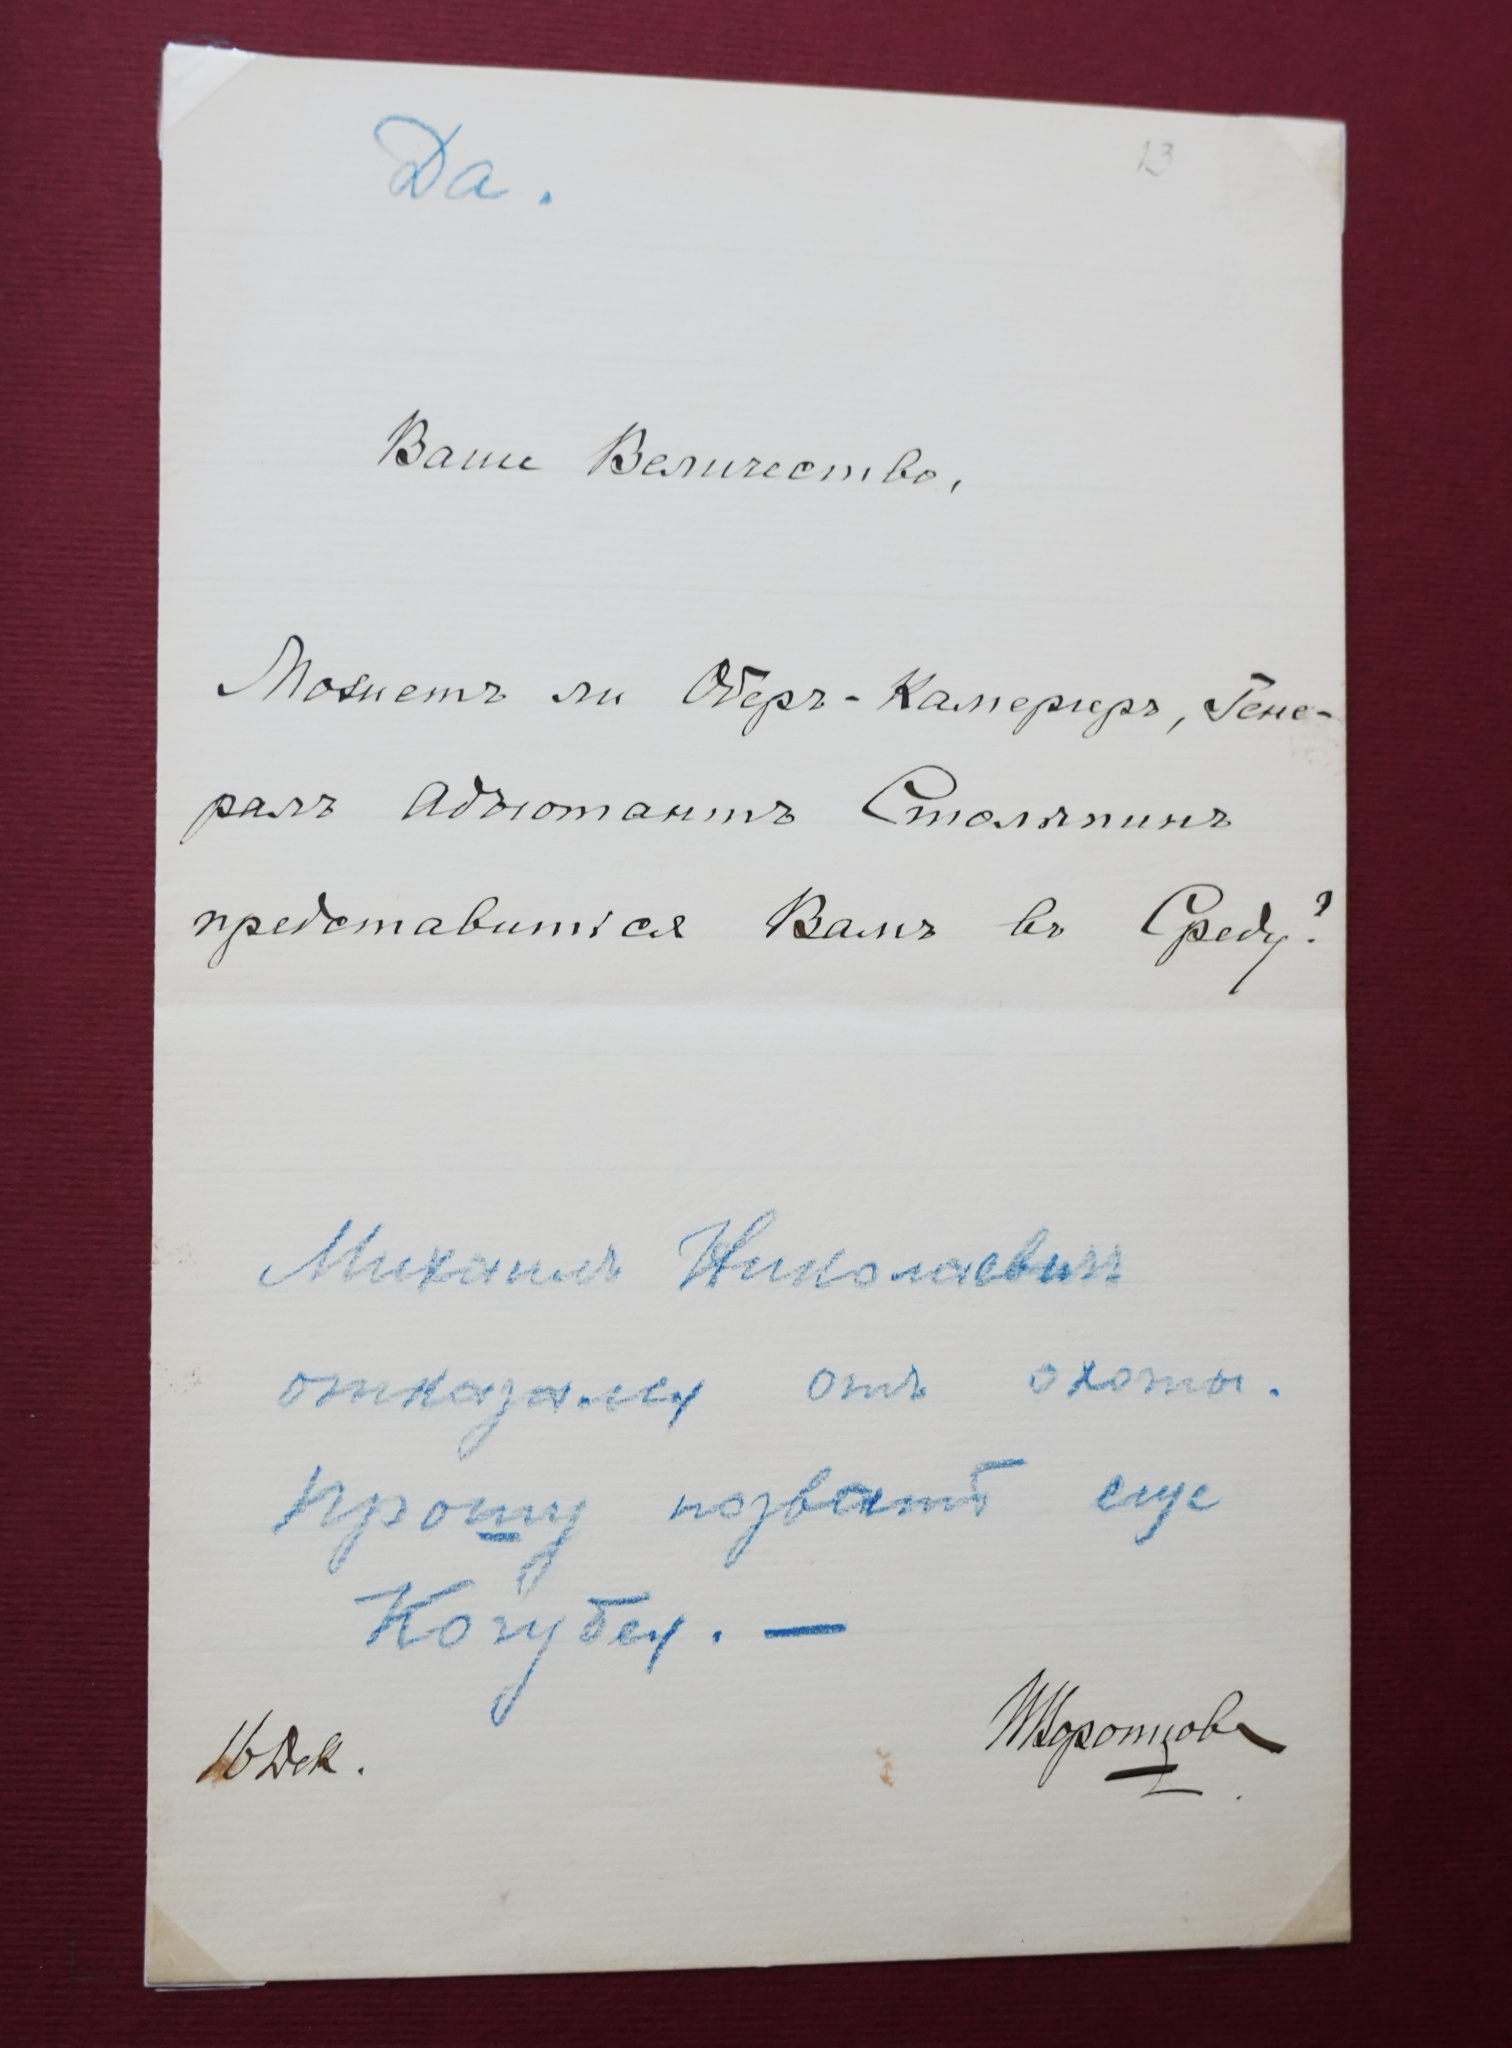 Да.
13
Ваше Величество,
Можетъ ли Оберъ-Камергеръ, Гене-
ралъ Адъютантъ Столыпинъ
представиться Вамъ въ Среду?
Михаилъ Николаевичъ
отказался отъ охоты.
Прошу позвать еще
Кочубея. —
16 Дек.
Воронцовъ